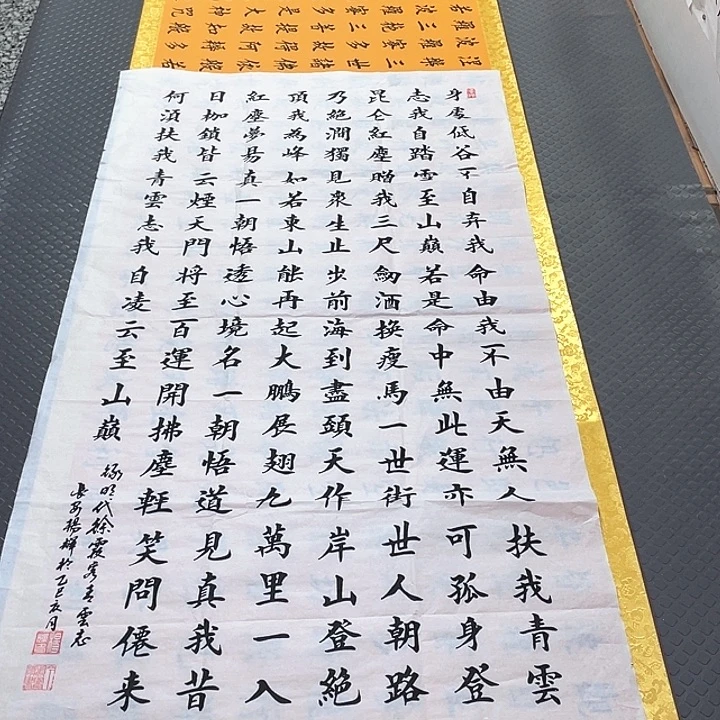 身處低谷不自弃我命由我不由天無人扶我青雲
志我自踏雪至山巔若是命中無此運亦可孤身登
昆仑紅塵贈我三尺劍酒換瘦馬一世街世人朝路
乃絕澗獨見衆生止步前海到盡頭天作岸山登絕
頂我為峰如若東山能再起大鵬展翅九萬里一入
紅塵夢易真一朝悟透心境名一朝悟道見真我昔
日枷鎖皆云煙天門将至百運開拂塵輕笑問僊來
何須扶我青雲志我自凌云至山巔
録明代徐霞客青雲志
長安楊輝於乙巳夏月